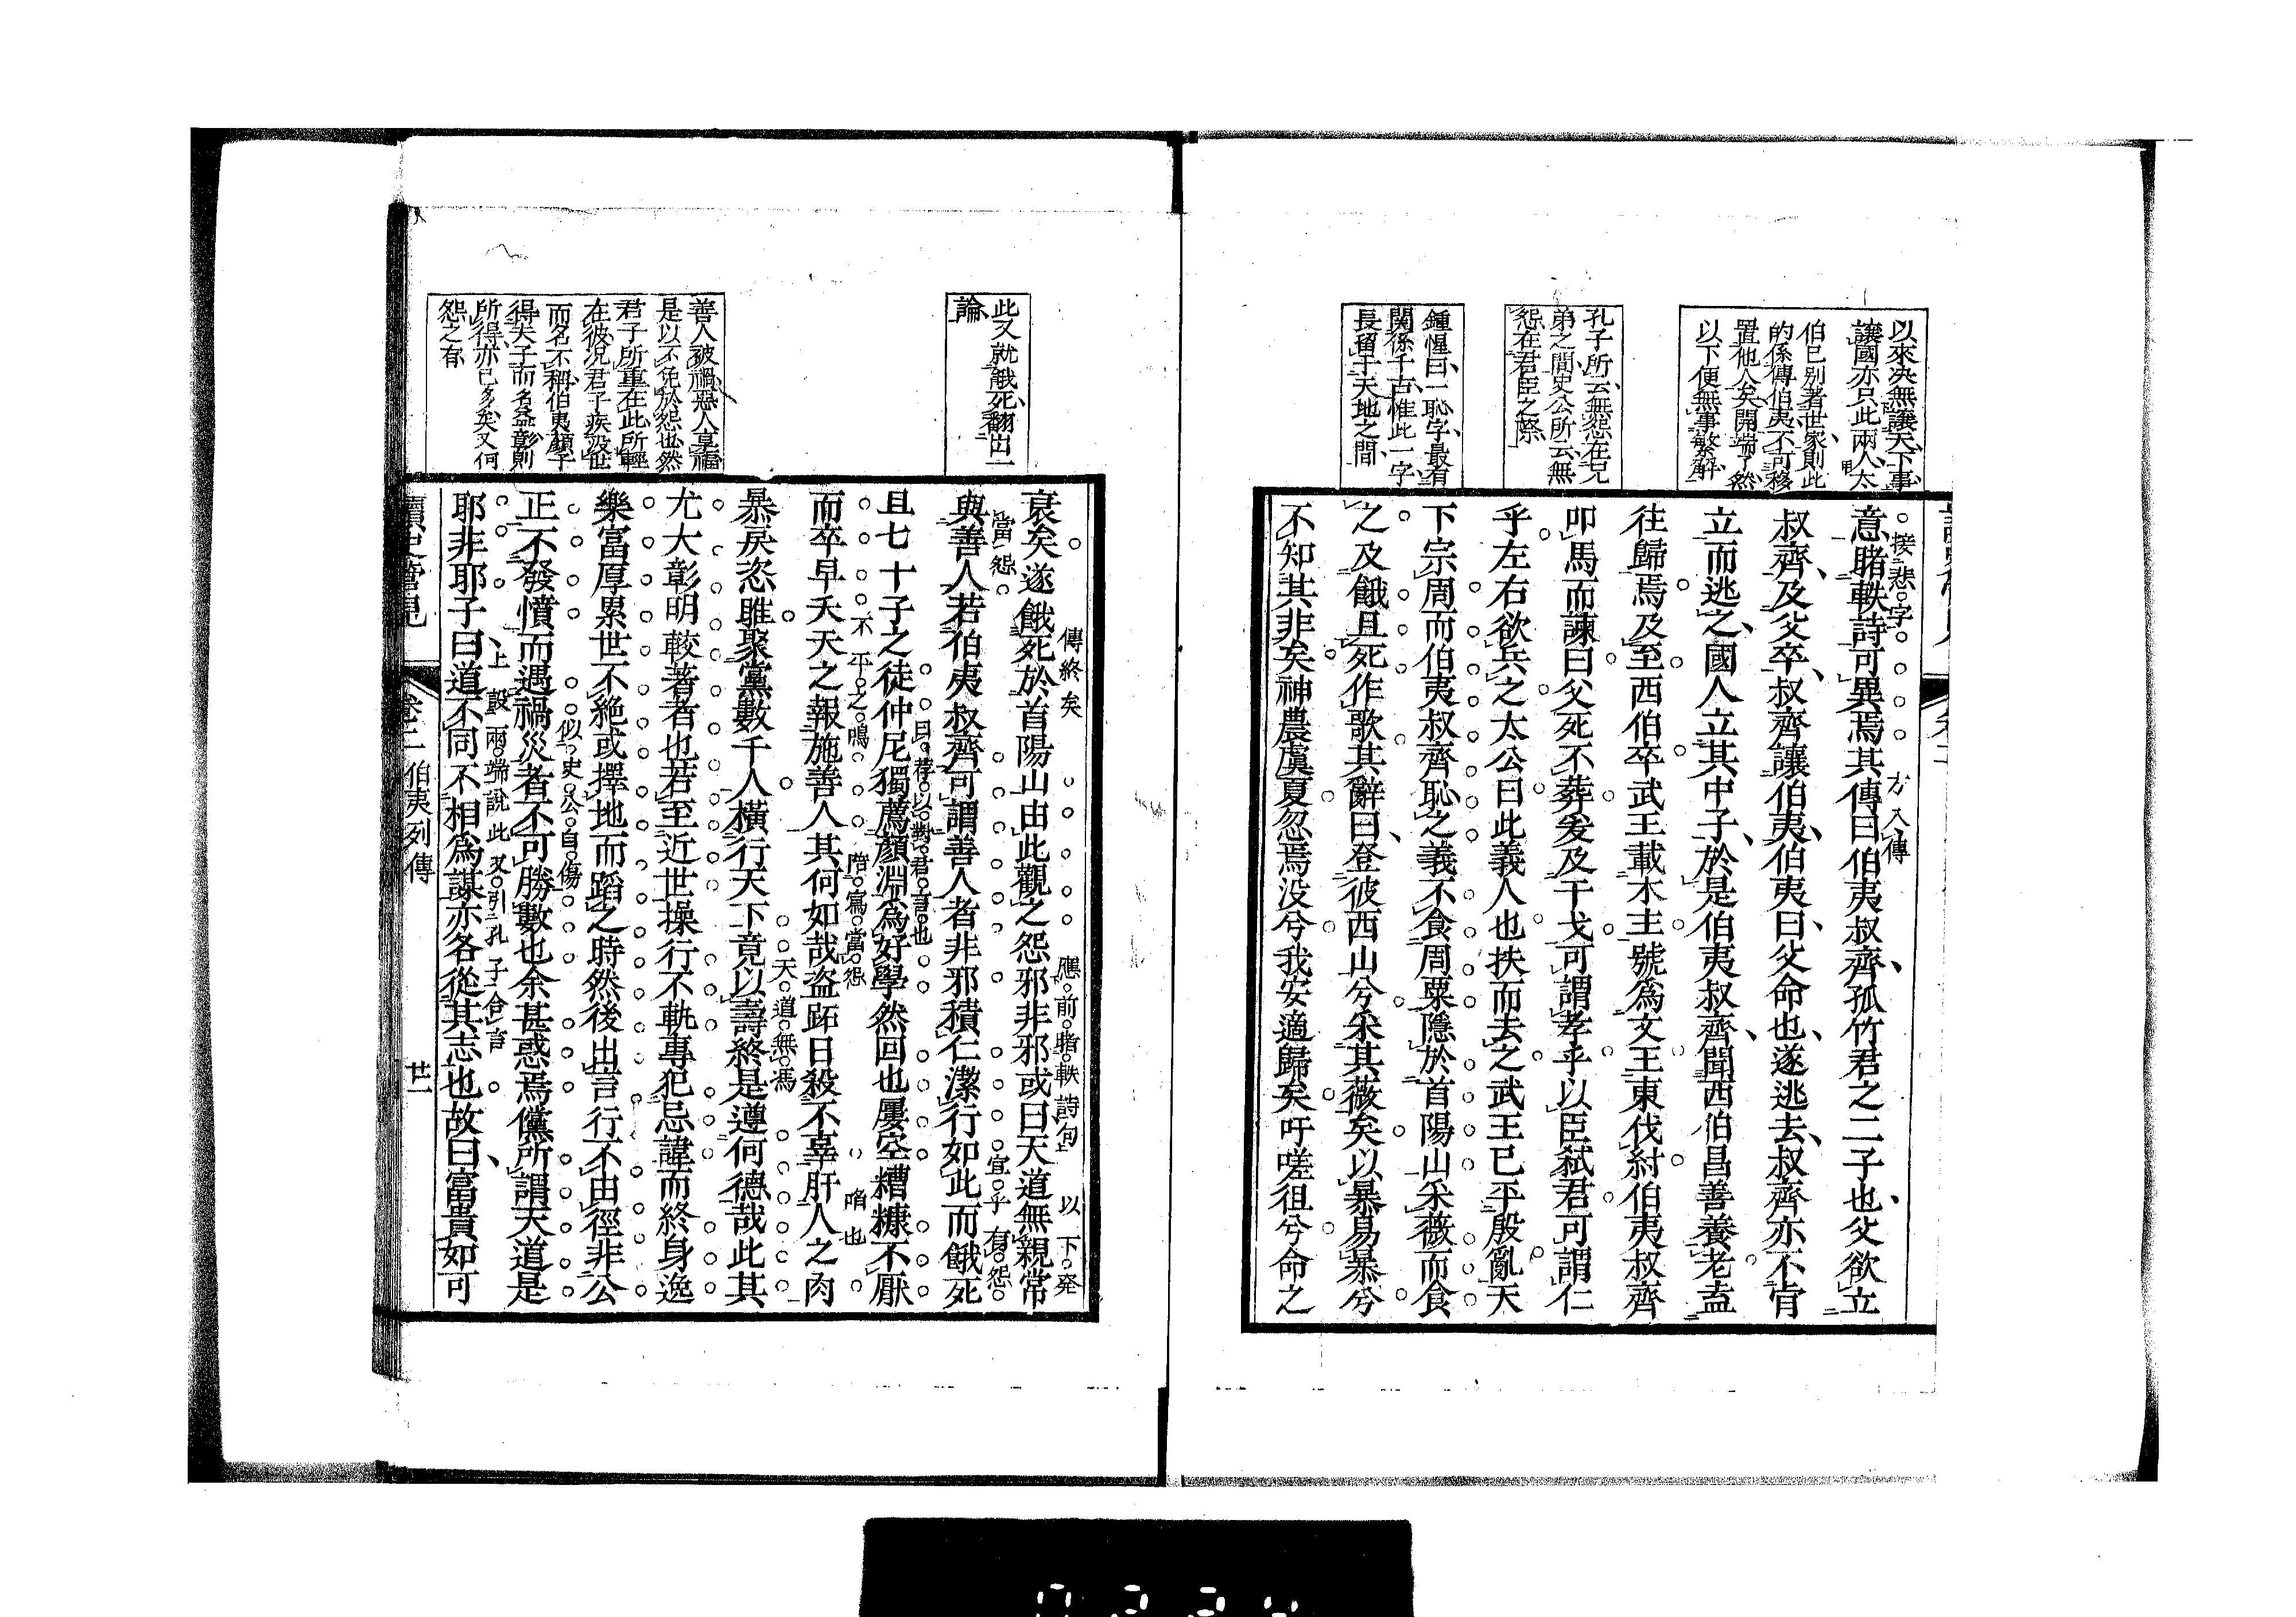 以來决無讓天下事
讓國亦只此兩人太
伯已别著世家則此
的係傳伯夷不可移
置他人矣開端了然
以下便無事繁解
孔子所云無怨在兄
弟之間史公所云無
怨在君臣之際
鍾惺曰一恥字最有
関係千古惟此一字
長留于天地之間
接悲字
方入傳
意睹軼詩可異焉其傳曰伯夷叔齊孤竹君之二子也父欲立
叔齊及父卒叔齊讓伯夷伯夷曰父命也遂逃去叔齊亦不肯
立而逃之國人立其中子於是伯夷叔齊聞西伯昌善養老盍
往歸焉及至西伯卒武王載木主號爲文王東伐紂伯夷叔齊
叩馬而諫曰父死不葬爰及干戈可謂孝乎以臣弑君可謂仁
乎左右欲兵之太公曰此義人也扶而去之武王已平殷亂天
下宗周而伯夷叔齊恥之義不食周粟隱於首陽山采薇而食
之及餓且死作歌其辭曰登彼西山兮采其薇矣以暴易暴兮
不知其非矣神農虞夏忽焉没兮我安適歸矣吁嗟徂兮命之
此又就餓死翻出一
論
善人被禍惡人享福
是以不免於怨也然
君子所重在此所輕
在彼况君子疾没世
而名不稱伯夷顔子
得夫子而名益彰則
所得亦已多矣又何
怨之有
傳終矣
應前睹軼詩句
以下発
衰矣遂餓死於首陽山由此觀之怨邪非邪或曰天道無親常
當怨
宜乎有怨
與善人若伯夷叔齊可謂善人者非邪積仁潔行如此而餓死
曰荐以對君言也
且七十子之徒仲尼獨薦顔淵爲好學然回也屢空糟糠不厭
不平之鳴
暗寫當怨
暗也
而卒早夭天之報施善人其何如哉盗跖日殺不辜肝人之肉
天道無馮
暴戻恣睢聚黨數千人横行天下竟以壽終是遵何德哉此其
尤大彰明較著者也若至近世操行不軌專犯忌諱而終身逸
樂富厚累世不絶或擇地而蹈之時然後出言行不由徑非公
似史公自傷
正不發憤而遇禍災者不可勝數也余甚惑焉儻所謂天道是
上設兩端說此又引孔子合言
耶非耶子曰道不同不相爲謀亦各從其志也故曰富貴如可
讀史管見
卷二 伯夷列傳
廿二